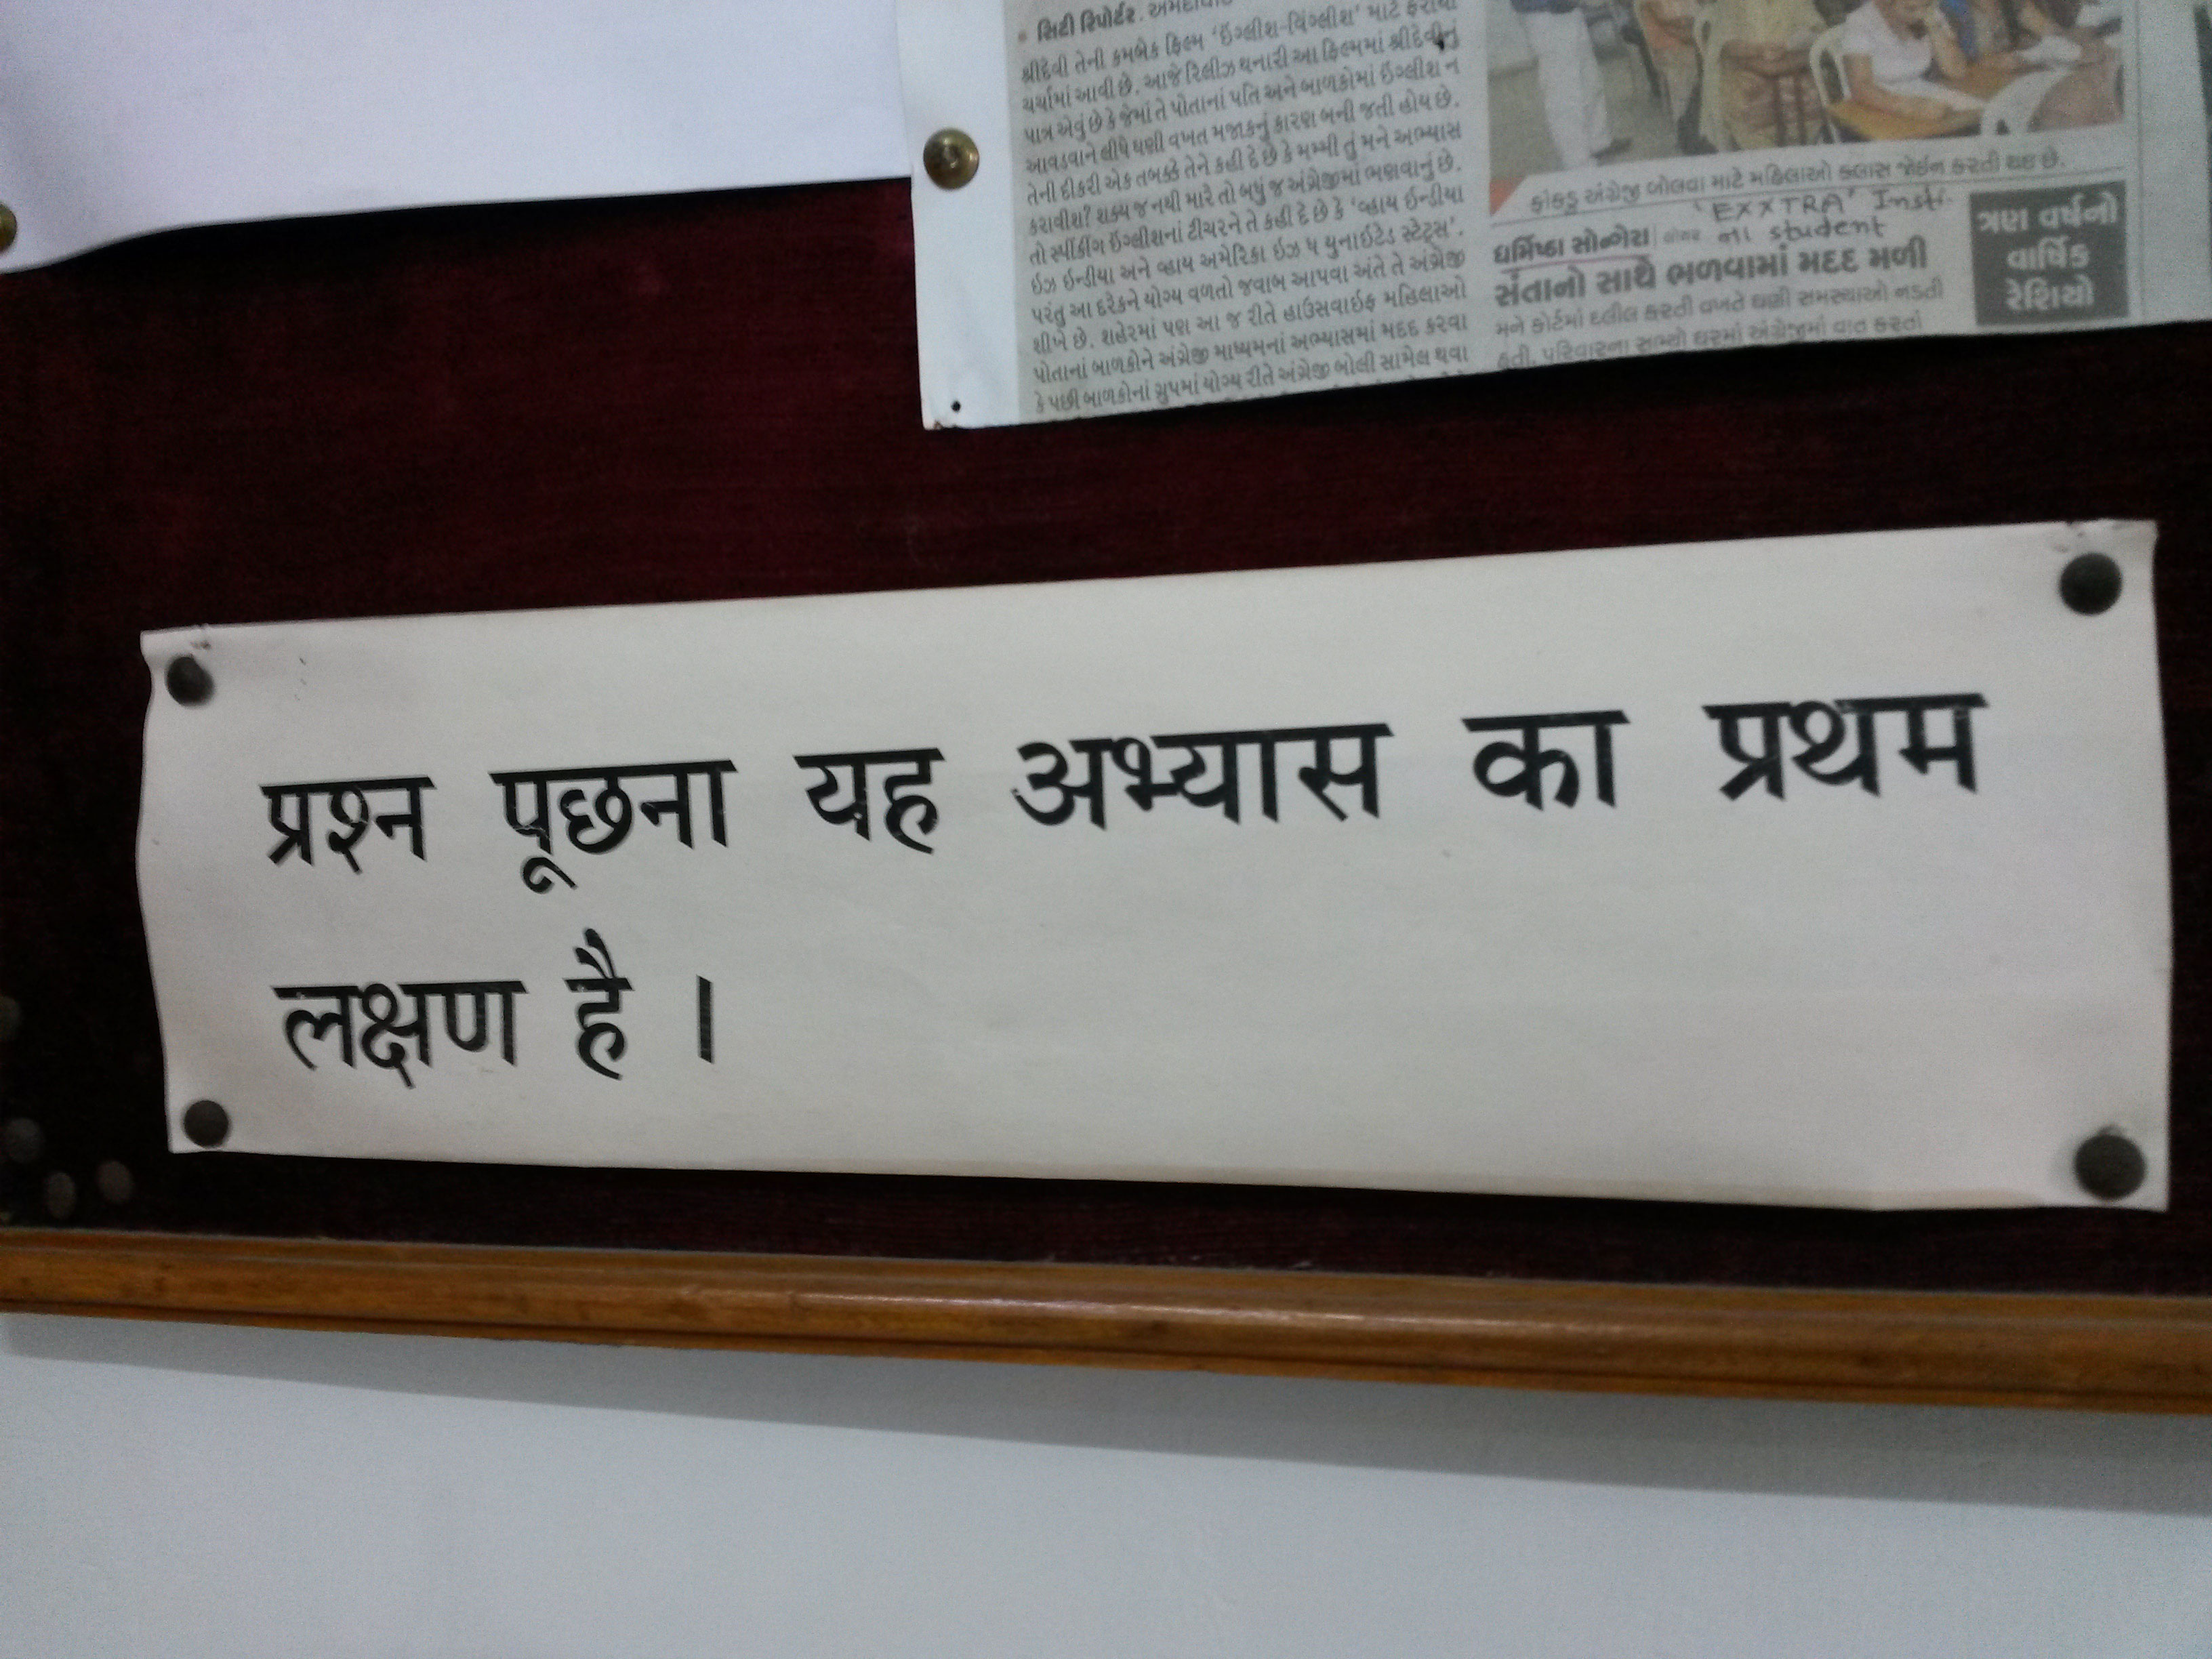 સિટી રિપોર્ટર.
શ્રીદેવી તેની કમબેક ફિલ્મ 'ઈંગ્લીશ-વિંગ્લીશ' માટે ફરીથી
ચર્ચામાં આવી છે. આજે રિલીઝ થનારી આ ફિલ્મમાં શ્રીદેવીનું
પાત્ર એવું છે કે જેમાં તે પોતાનાં પતિ અને બાળકોમાં ઈંગ્લીશ ન
આવડવાને લીધે ઘણી વખત મજાકનું કારણ બની જતી હોય છે.
તેની દીકરી એક તબક્કે તેને કહી દે છે કે મમ્મી તું મને અભ્યાસ
કરાવીશ? શક્ય જ નથી મારે તો બધું જ અંગ્રેજીમાં ભણવાનું છે.
તો સ્પીકીંગ ઈંગ્લીશનાં ટીચરને તે કહી દે છે કે 'વ્હાય ઈન્ડીયા
ઇઝ ઇન્ડીયા અને વ્હાય અમેરિકા ઇઝ ધ યુનાઈટેડ સ્ટેટ્સ'.
પરંતુ આ દરેકને યોગ્ય વળતો જવાબ આપવા અંતે તે અંગ્રેજી
શીખે છે. શહેરમાં પણ આ જ રીતે હાઉસવાઈફ મહિલાઓ
પોતાનાં બાળકોને અંગ્રેજી માધ્યમનાં અભ્યાસમાં મદદ કરવા
કે પછી બાળકોનાં ગ્રુપમાં યોગ્ય રીતે અંગ્રેજી બોલી સામેલ થવા
ફાંકડુ અંગ્રેજી બોલવા માટે મહિલાઓ ક્લાસ જોઇન કરતી થઇ છે.
'EXXTRA' Insti.
ના student
ધર્મિષ્ઠા સોન્ગેરા
સંતાનો સાથે ભળવામાં મદદ મળી
મને કોર્ટમાં દલીલ કરતી વખતે ઘણી સમસ્યાઓ નડતી
હતી. પરિવારના સભ્યો ઘરમાં અંગ્રેજીમાં વાત કરતાં
ત્રણ વર્ષનો
વાર્ષિક
રેશિયો
प्रश्न पूछना यह अभ्यास का प्रथम
लक्षण है ।